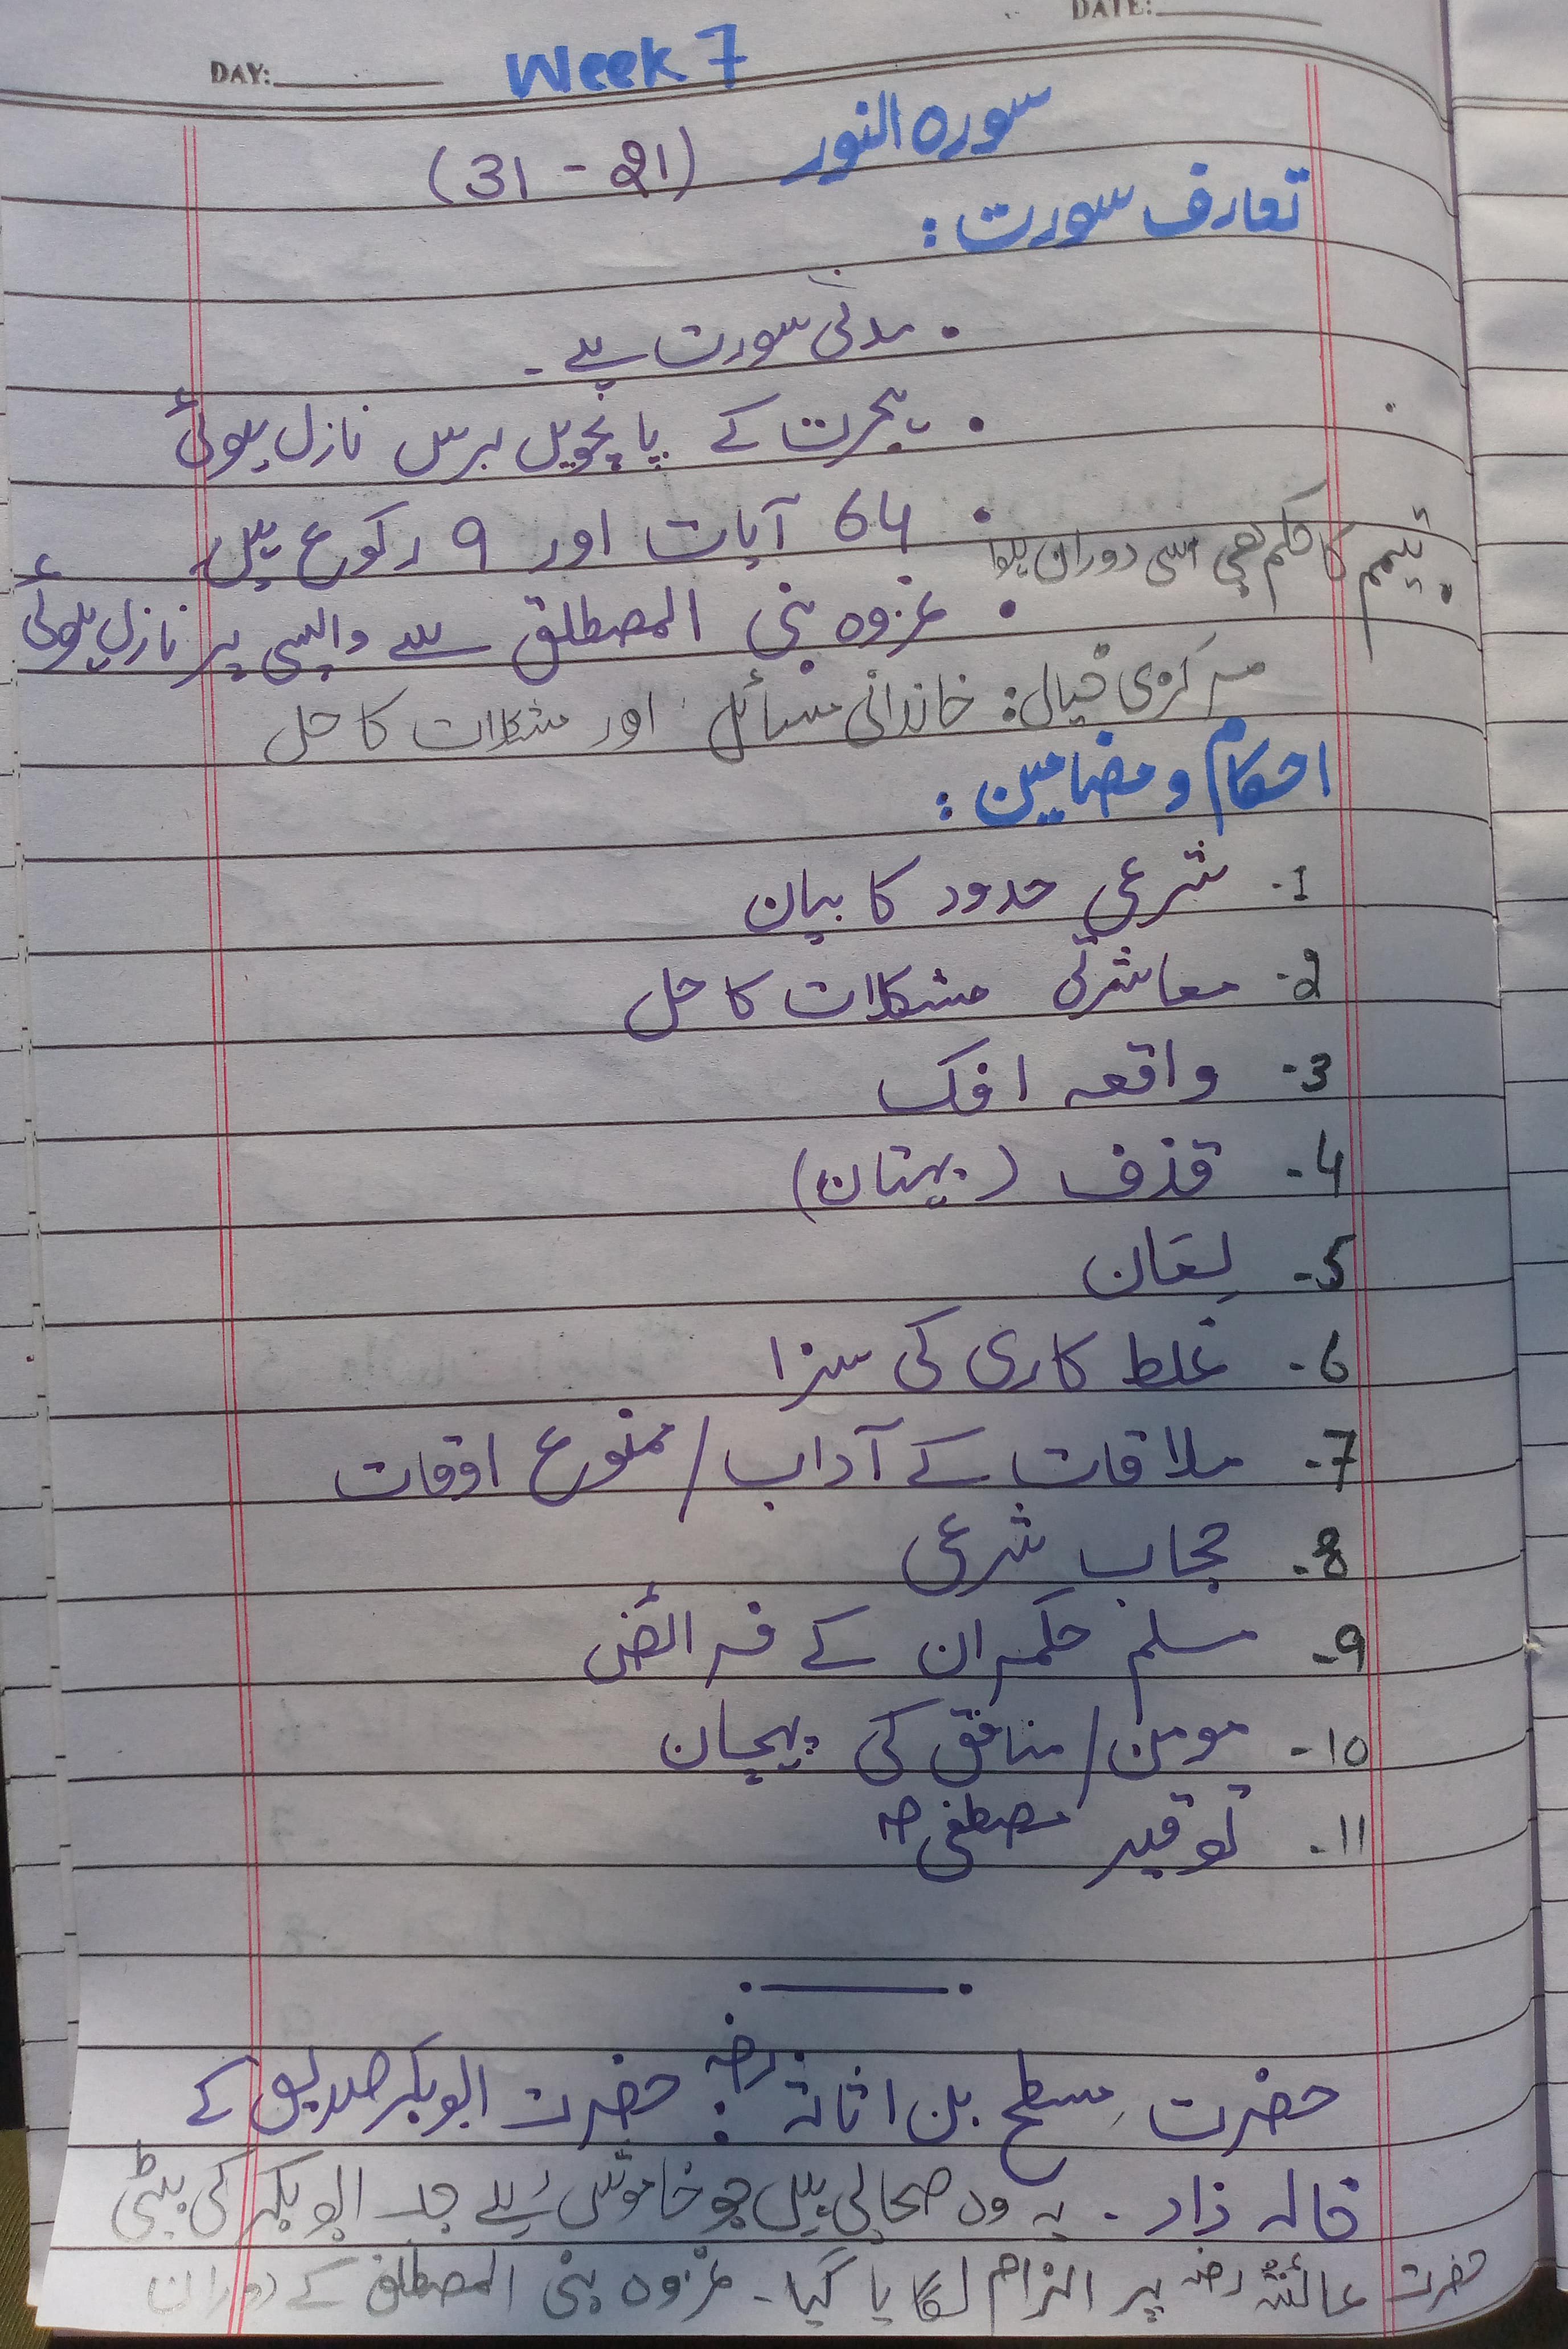 DATE:
DAY:
Week 7
سورہ النور (21 - 31)
تعارف سورت:
• مدنی سورت ہے -
• ہجرت کے پانچویں برس نازل ہوئی
• 64 آیات اور 9 رکوع ہیں
• تیمم کا حکم بھی اسی دوران ہوا
• غزوہ بنی المصطلق سے واپسی پر نازل ہوئی
مرکزی خیال: خاندانی مسائل اور مشکلات کا حل
احکام و مضامین:
1- شرعی حدود کا بیان
2- معاشرتی مشکلات کا حل
3- واقعہ افک
4- قذف (بہتان)
5- لِعَان
6- غلط کاری کی سزا
7- ملاقات کے آداب/ممنوع اوقات
8- حجاب شرعی
9- مسلم حکمران کے فرائض
10- مومن/منافق کی پہچان
11- توقیر مصطفیٰ ؐ
حضرت مِسطح بن اثاثہ رضہ: حضرت ابوبکر صدیق کے
خالہ زاد - یہ وہ صحابی ہیں جو خاموش رہے جب ابوبکر کی بیٹی
حضرت عائشہ رضہ پر الزام لگایا گیا - غزوہ بنی المصطلق کے دوران